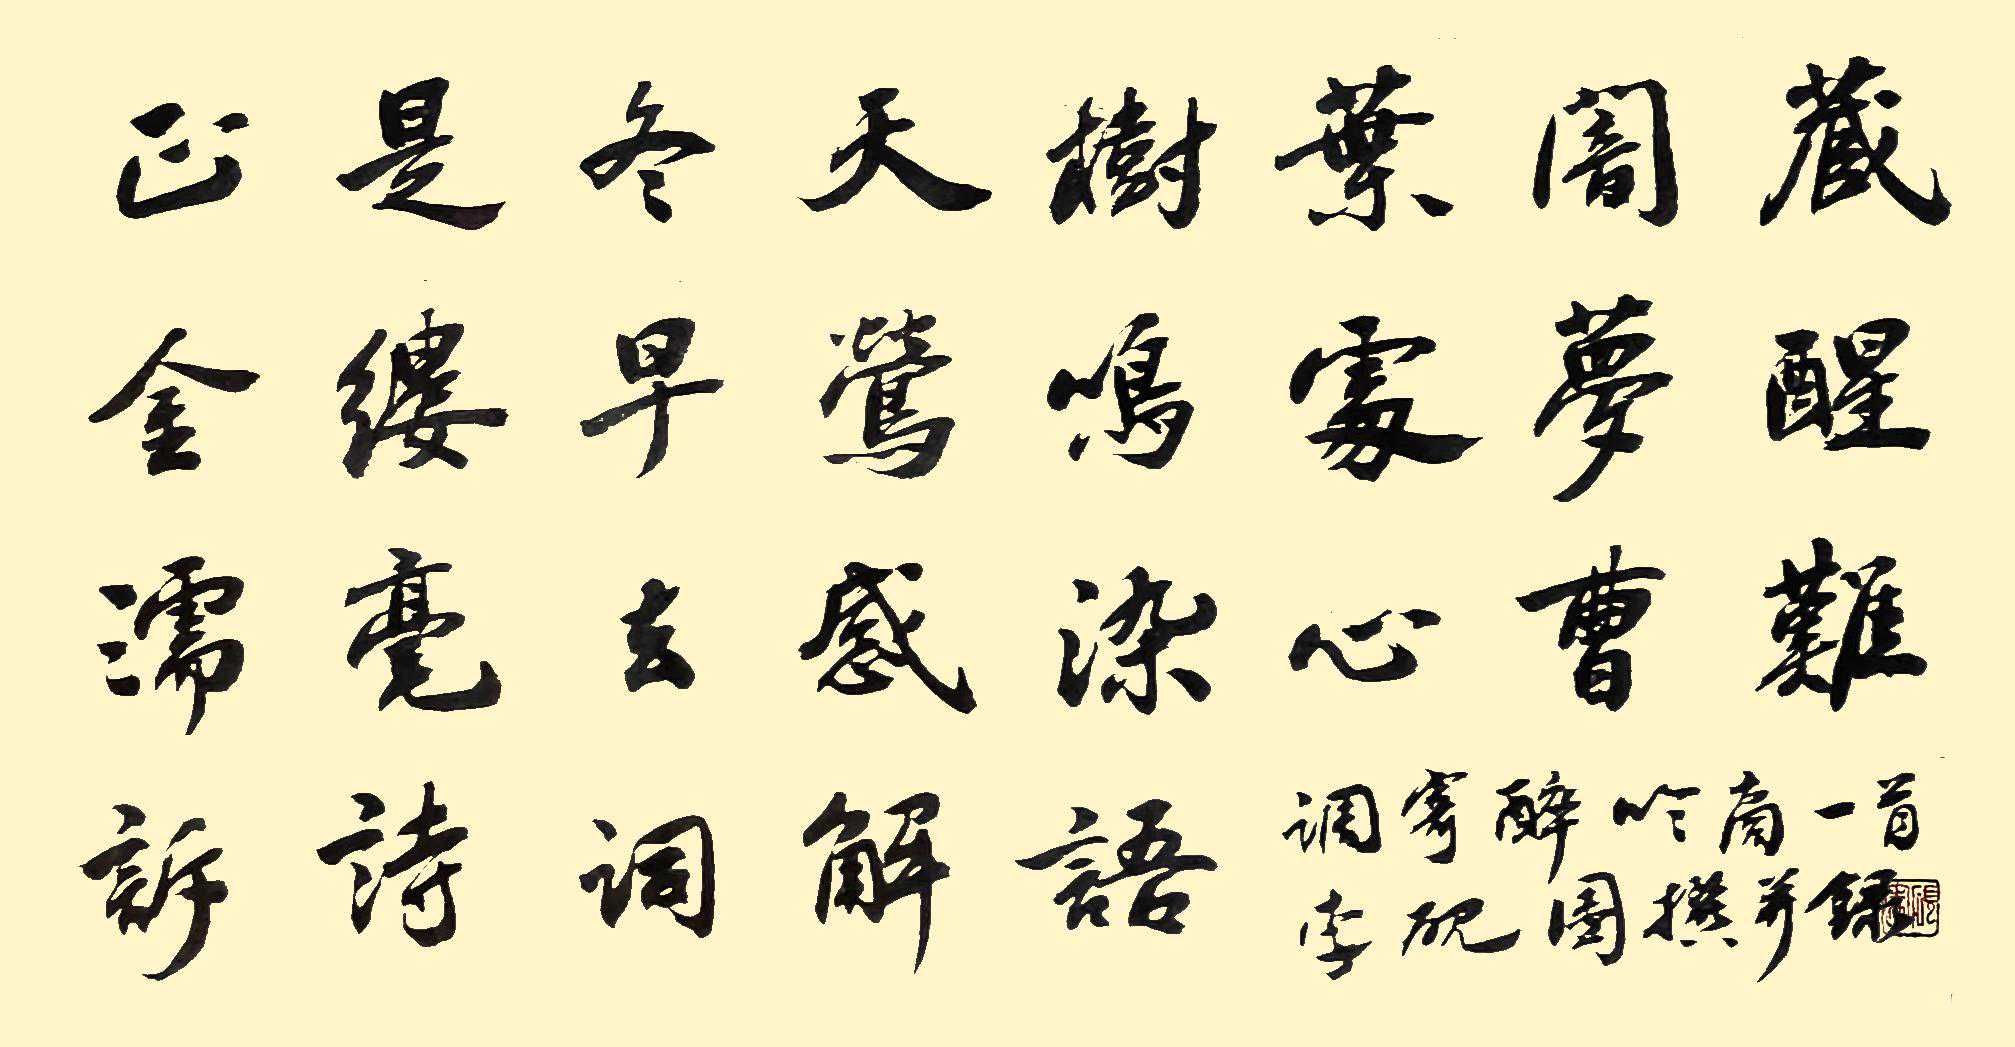 正是冬天樹葉闇藏
金縷早鶯鳴處夢醒
濡毫去感染心曹難
訴詩詞解語
调寄醉吟商一首
李硯圖撰并録